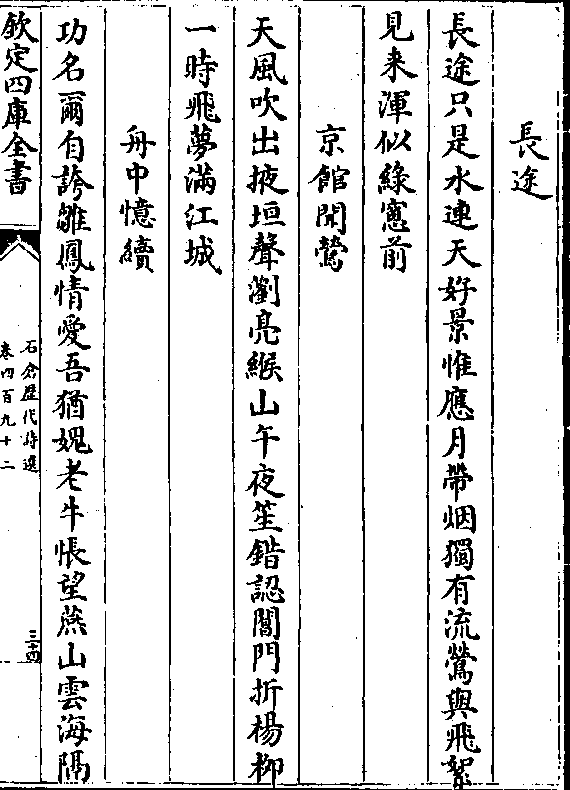 長途
長途只是水連天好景惟應月帶烟獨有流鶯與飛絮
見来渾似綠窻前
京館聞鶯
天風吹出掖垣聲瀏亮緱山午夜笙錯認閶門折楊柳
一時飛夢滿江城
舟中憶續
功名爾自誇雛鳳情愛吾猶媿老牛悵望燕山雲海隔
欽定四庫全書
石倉歴代詩選
卷四百九十二
三十四